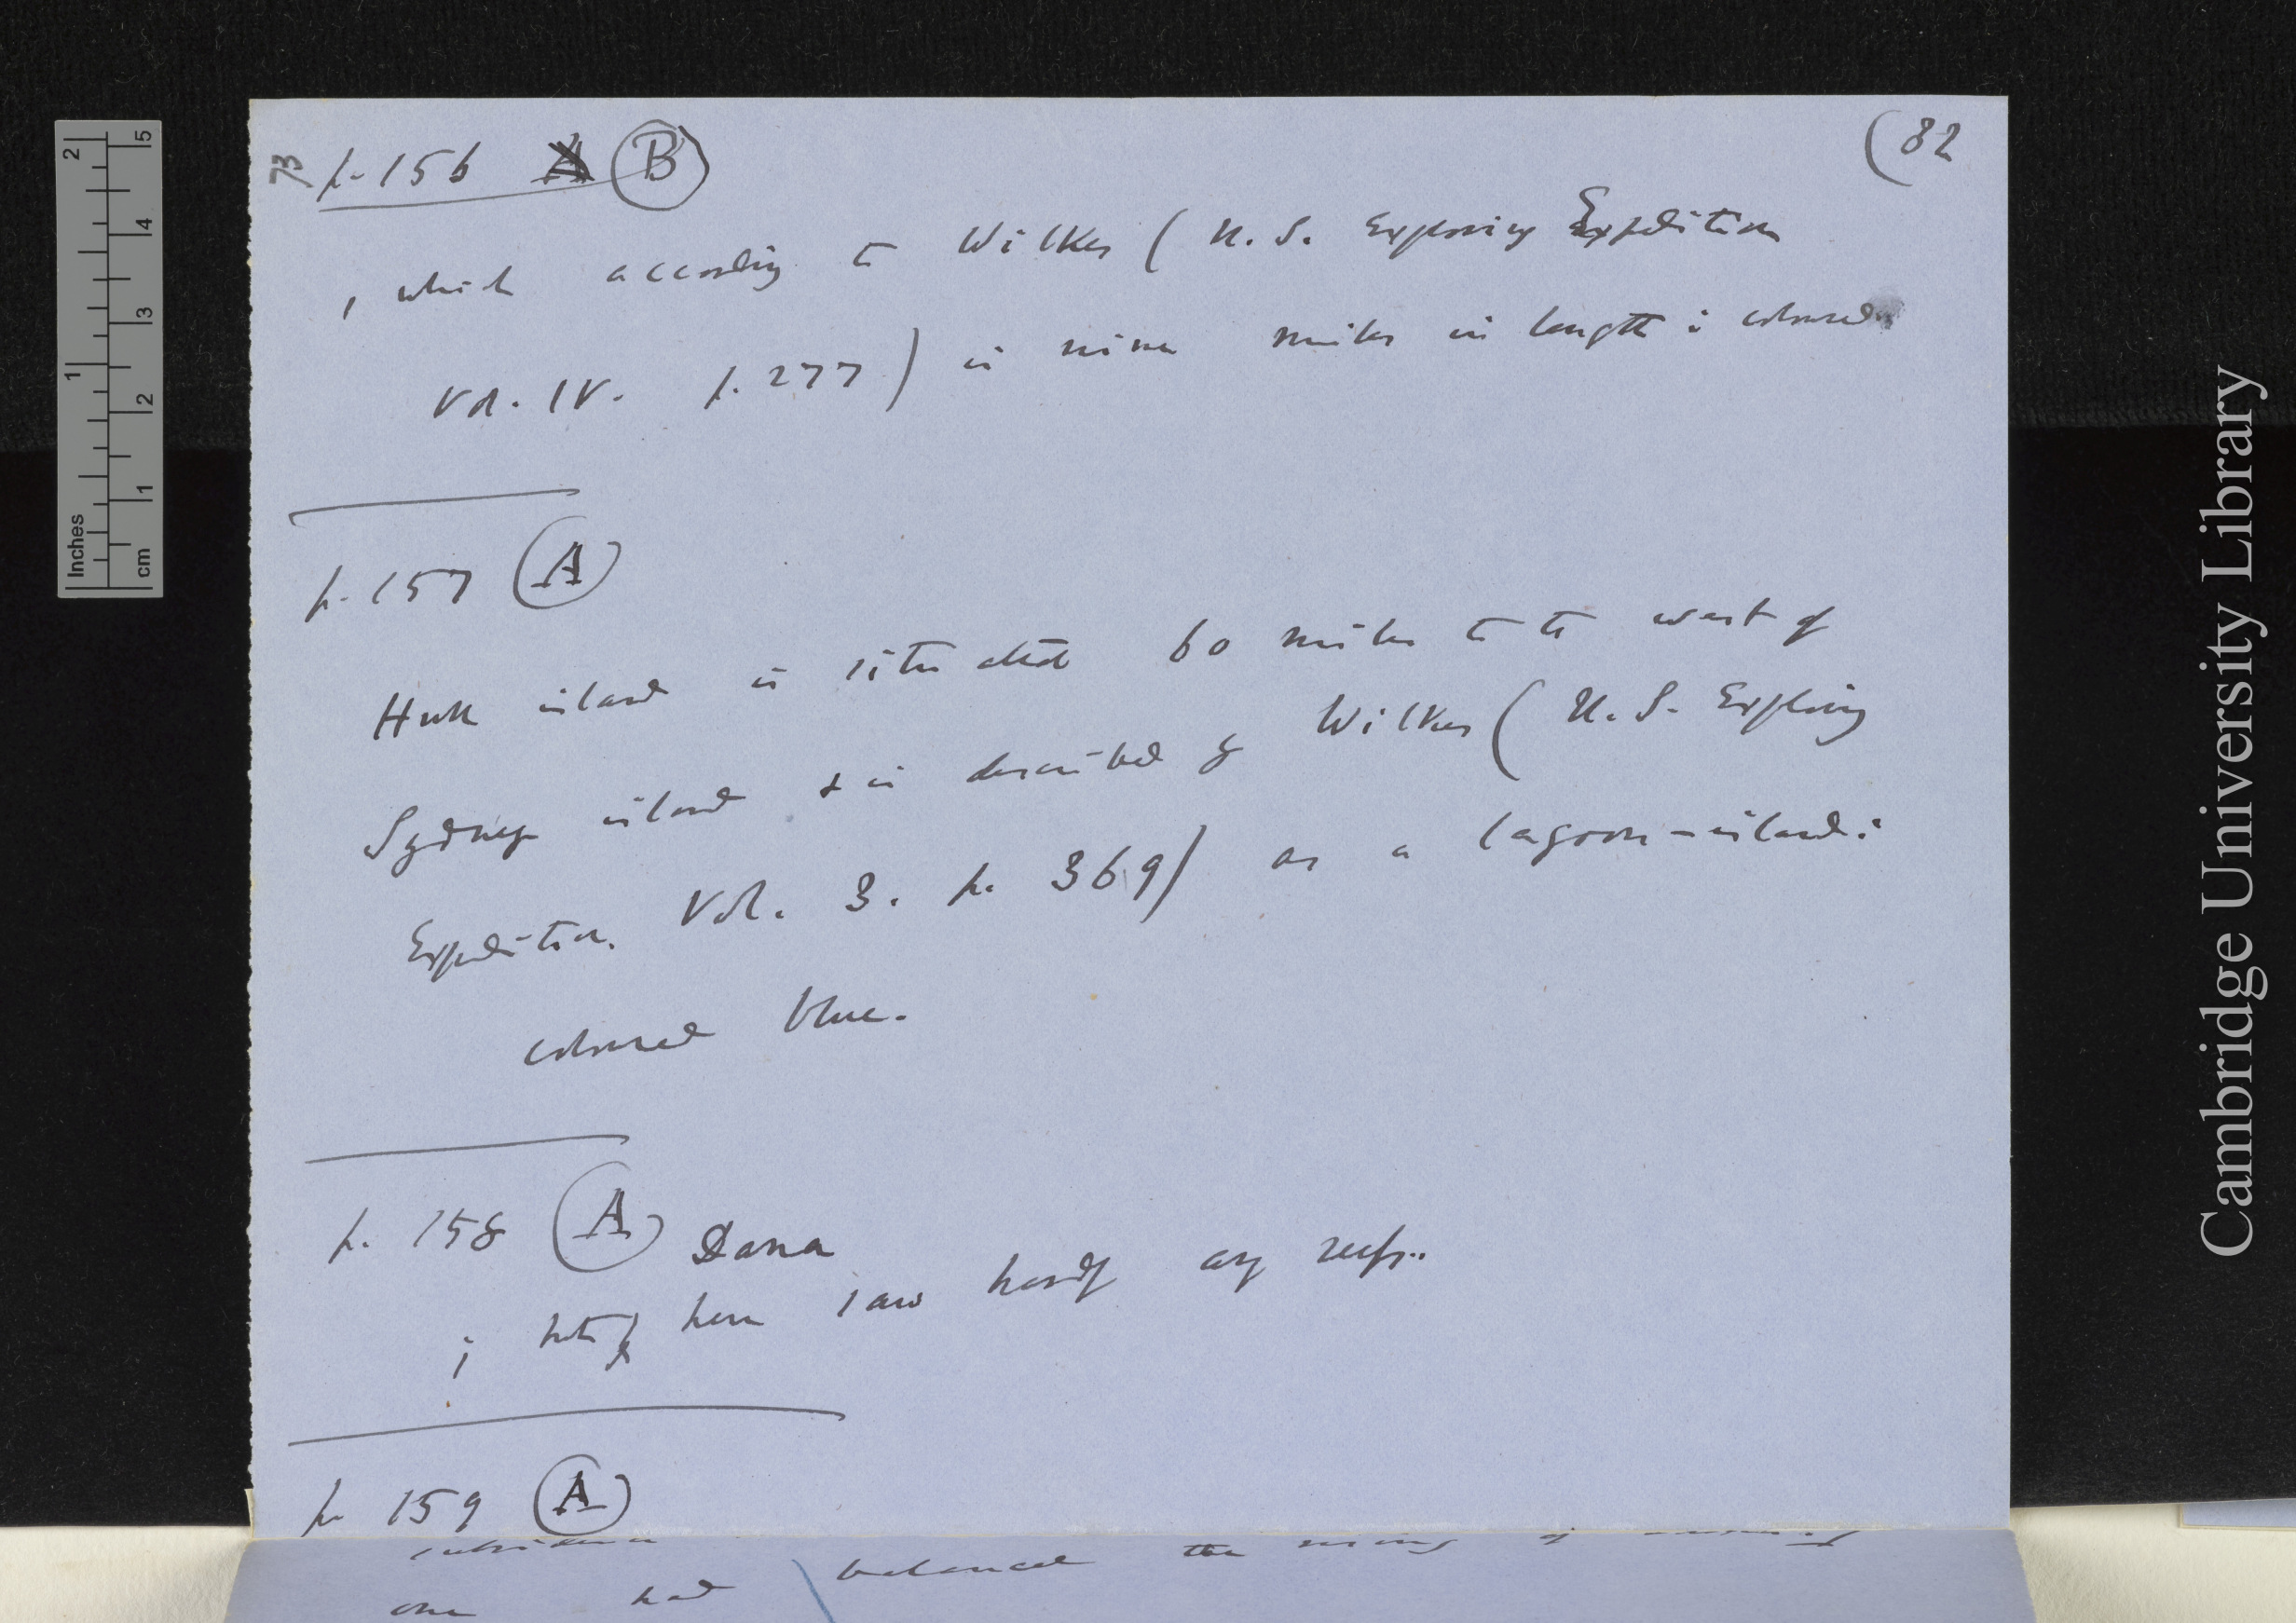 73
p. 156 A (B)
(82
, which according to Wilkes (U.S. Exploring Expedition
Vol. IV. p. 277) is nine miles in length: coloured
p. 157 (A)
Hull island is situated 60 miles to the west of
Sydney island & is described by Wilkes (U.S. Exploring
Expedition. Vol. 3. p. 369) as a lagoon-island:
coloured blue.
p. 158 (A)
Dana
; but here saw hardly any reefs.
p 159 (A)
subsidence balanced the
one had
Inches 1 2
cm 1 2 3 4 5
Cambridge University Library